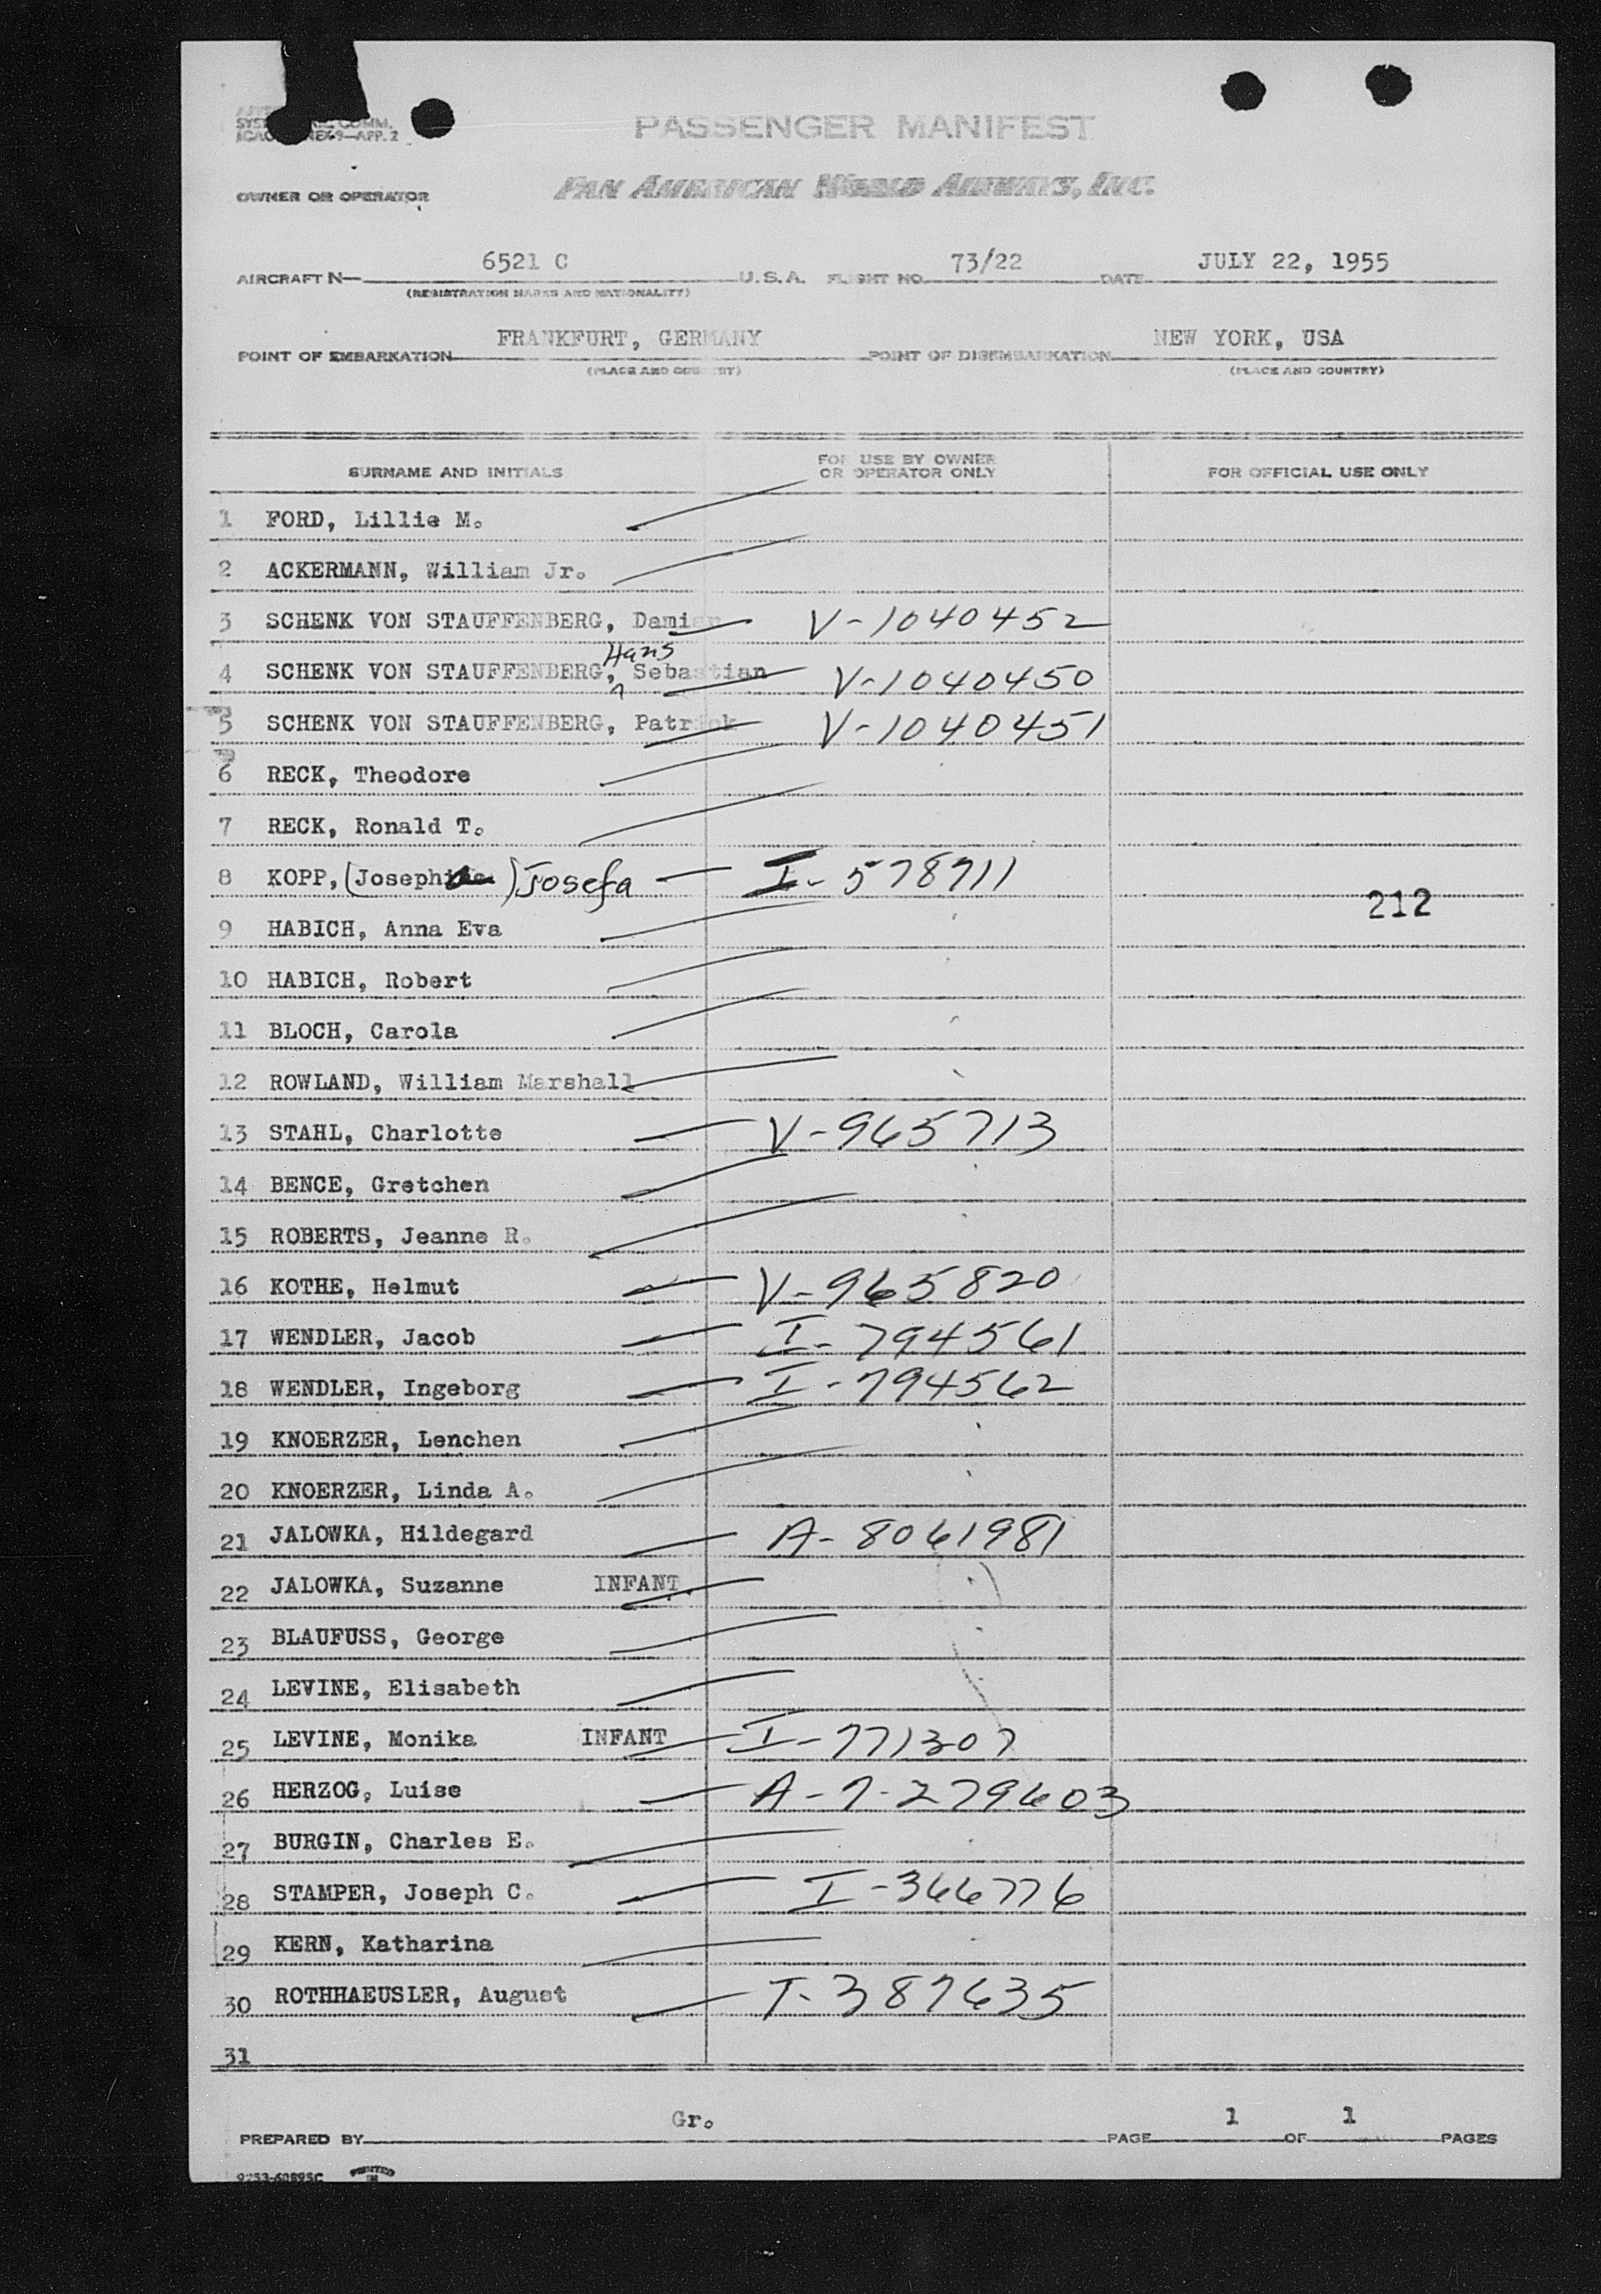 PASSENGER MANIFEST
OWNER OR OPERATOR PAN AMERICAN WORLD AIRWAYS, INC.
AIRCRAFT N— 6521 C U.S.A. FLIGHT NO. 73/22 DATE JULY 22, 1955
(REGISTRATION MARKS AND NATIONALITY)
POINT OF EMBARKATION FRANKFURT, GERMANY POINT OF DISEMBARKATION NEW YORK, USA
(PLACE AND COUNTRY) (PLACE AND COUNTRY)
SURNAME AND INITIALS FOR USE BY OWNER OR OPERATOR ONLY FOR OFFICIAL USE ONLY
1 FORD, Lillie M.
2 ACKERMANN, William Jr.
3 SCHENK VON STAUFFENBERG, Damian V-1040452
4 SCHENK VON STAUFFENBERG, Hans Sebastian V-1040450
5 SCHENK VON STAUFFENBERG, Patrick V-1040451
6 RECK, Theodore
7 RECK, Ronald T.
8 KOPP, (Josephi ) Josefa I-578711
212
9 HABICH, Anna Eva
10 HABICH, Robert
11 BLOCH, Carola
12 ROWLAND, William Marshall
13 STAHL, Charlotte V-965713
14 BENCE, Gretchen
15 ROBERTS, Jeanne R.
16 KOTHE, Helmut V-965820
17 WENDLER, Jacob I-794561
18 WENDLER, Ingeborg I-794562
19 KNOERZER, Lenchen
20 KNOERZER, Linda A.
21 JALOWKA, Hildegard A-8061981
22 JALOWKA, Suzanne INFANT
23 BLAUFUSS, George
24 LEVINE, Elisabeth
25 LEVINE, Monika INFANT I-771307
26 HERZOG, Luise A-7-279603
27 BURGIN, Charles E.
28 STAMPER, Joseph C. I-366776
29 KERN, Katharina
30 ROTHHAEUSLER, August I-387635
31
PREPARED BY Gr. PAGE 1 OF 1 PAGES